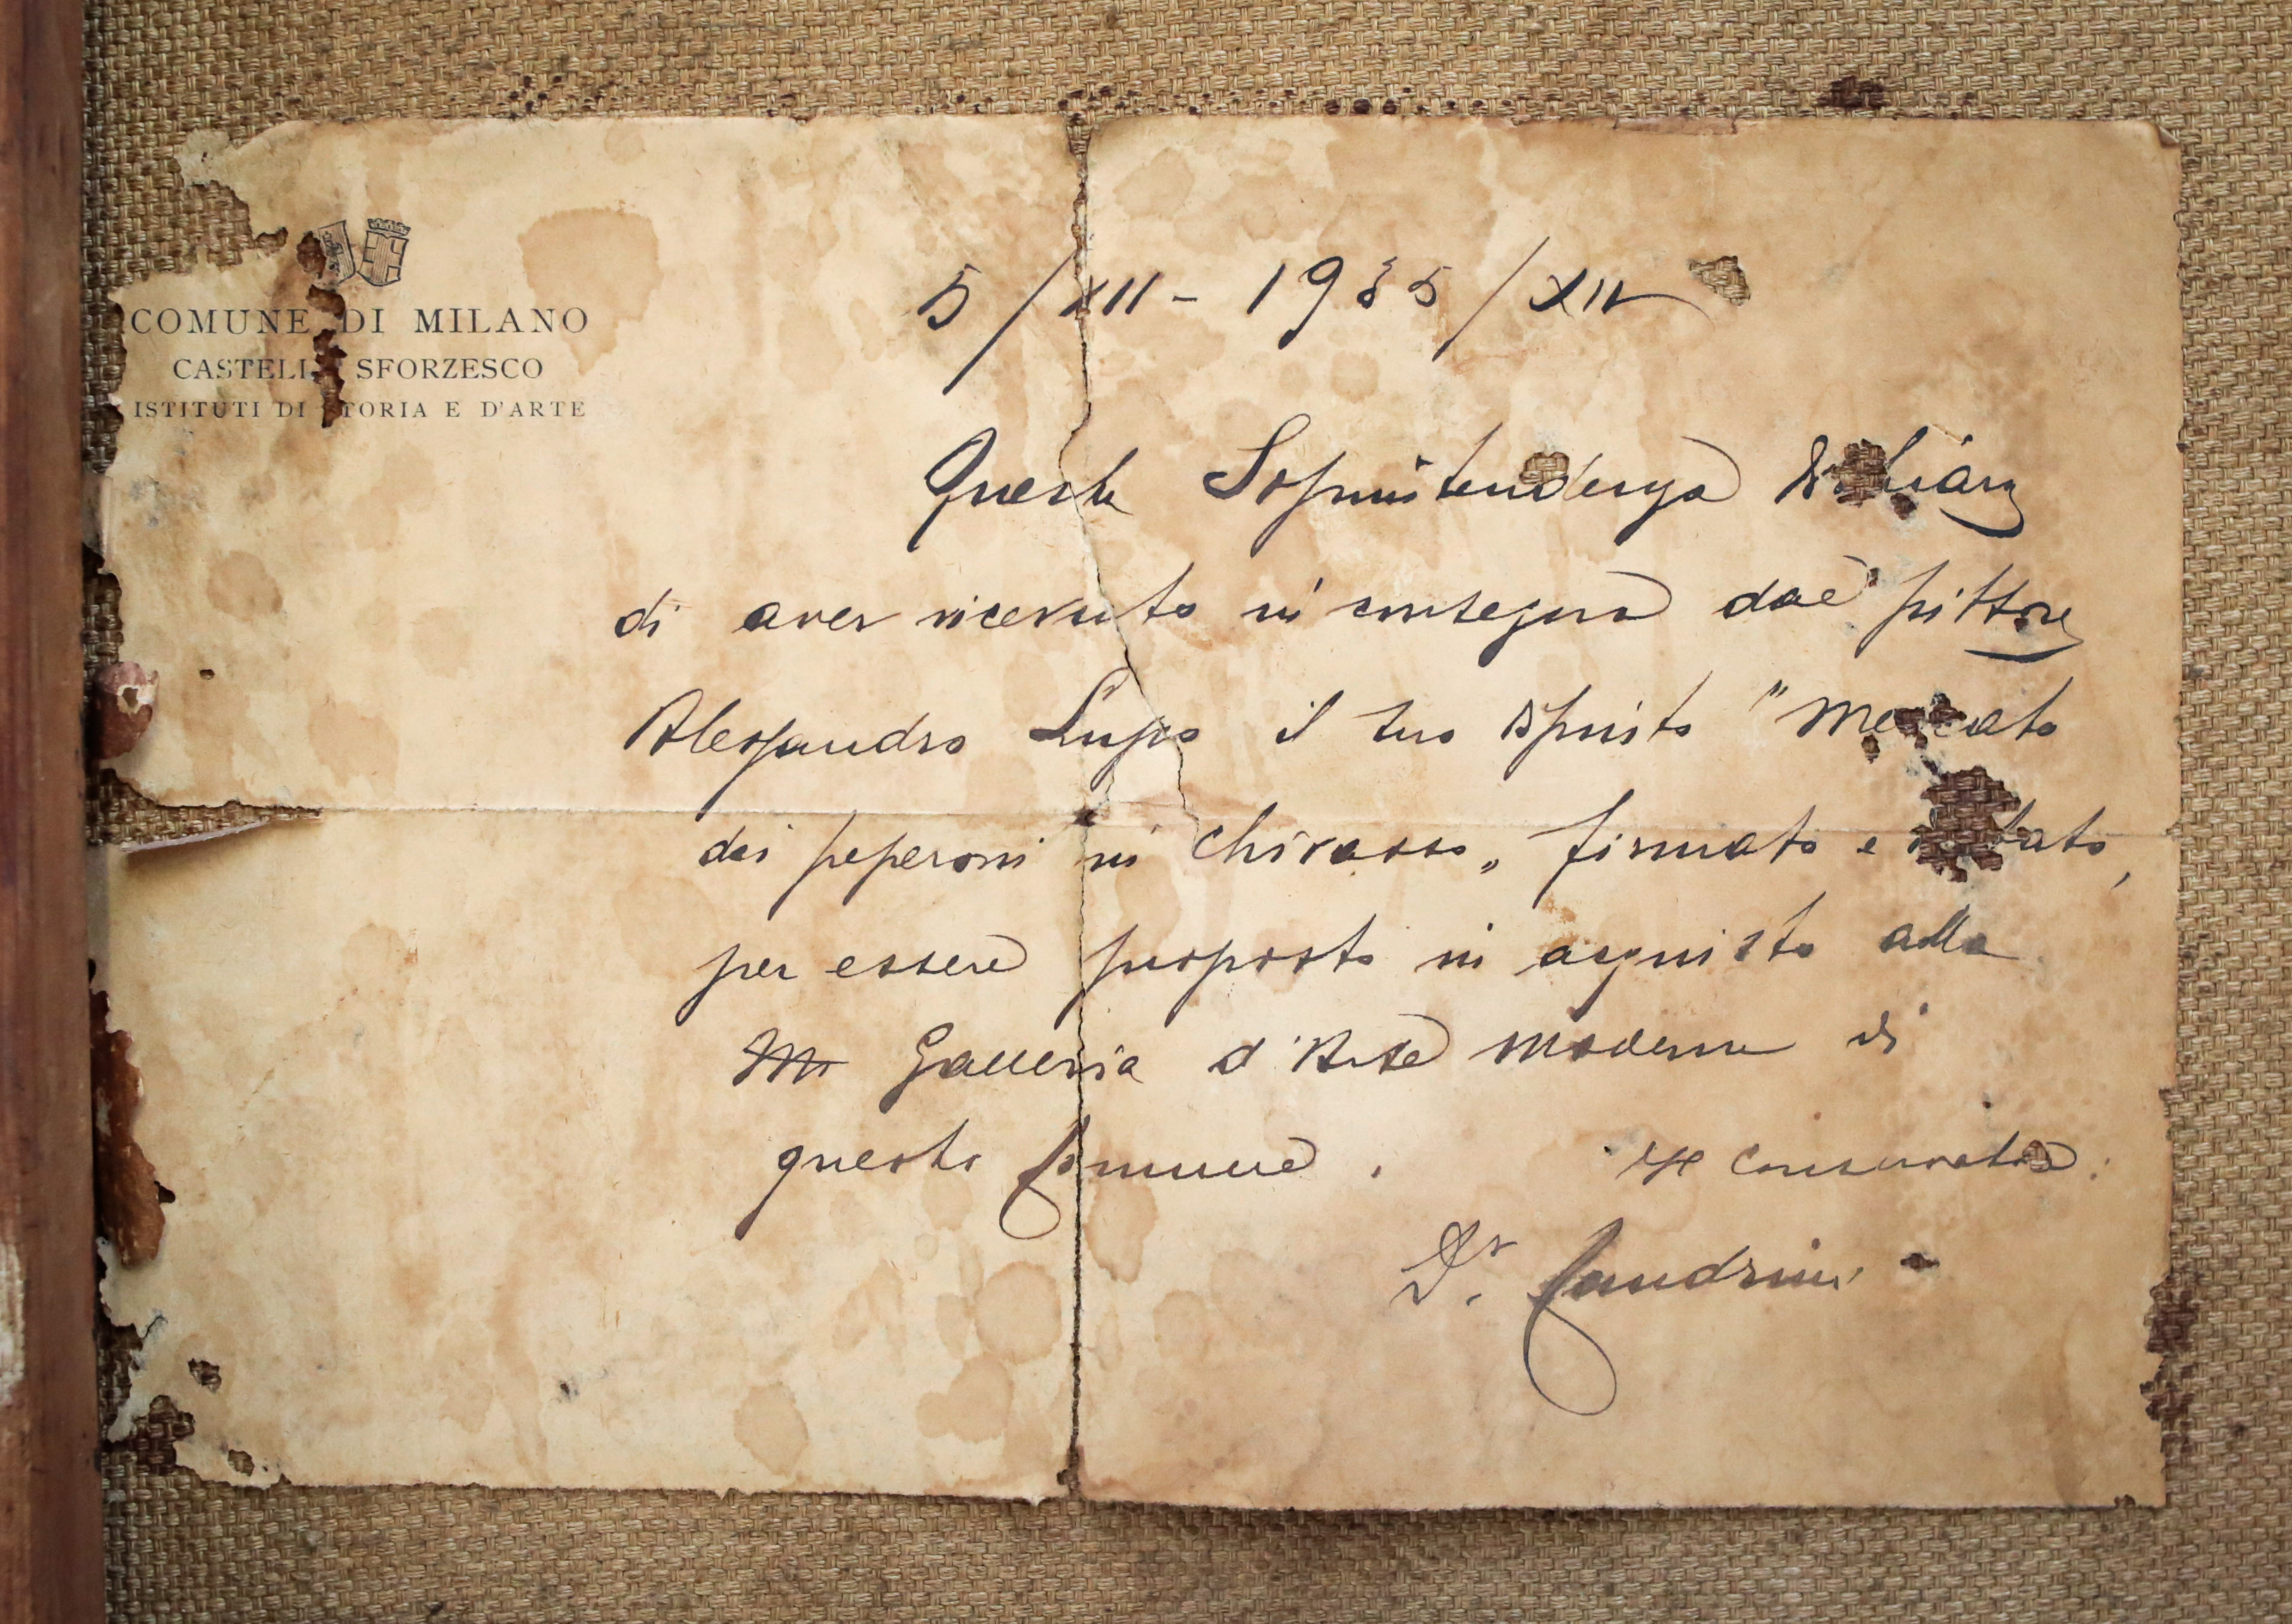 COMUNE DI MILANO
CASTELL SFORZESCO
ISTITUTI DI STORIA E D'ARTE
5/XII - 1935/XIV
Questa Soprintendenza dichiara
di aver ricevuto in consegna dal pittore
Alessandro Lupo il suo dipinto "Mercato
dei peperoni in Chivasso" firmato e datato,
per essere proposto in acquisto alla
Galleria d'Arte Moderna di
questo Comune.
Il conservatore:
Dr.